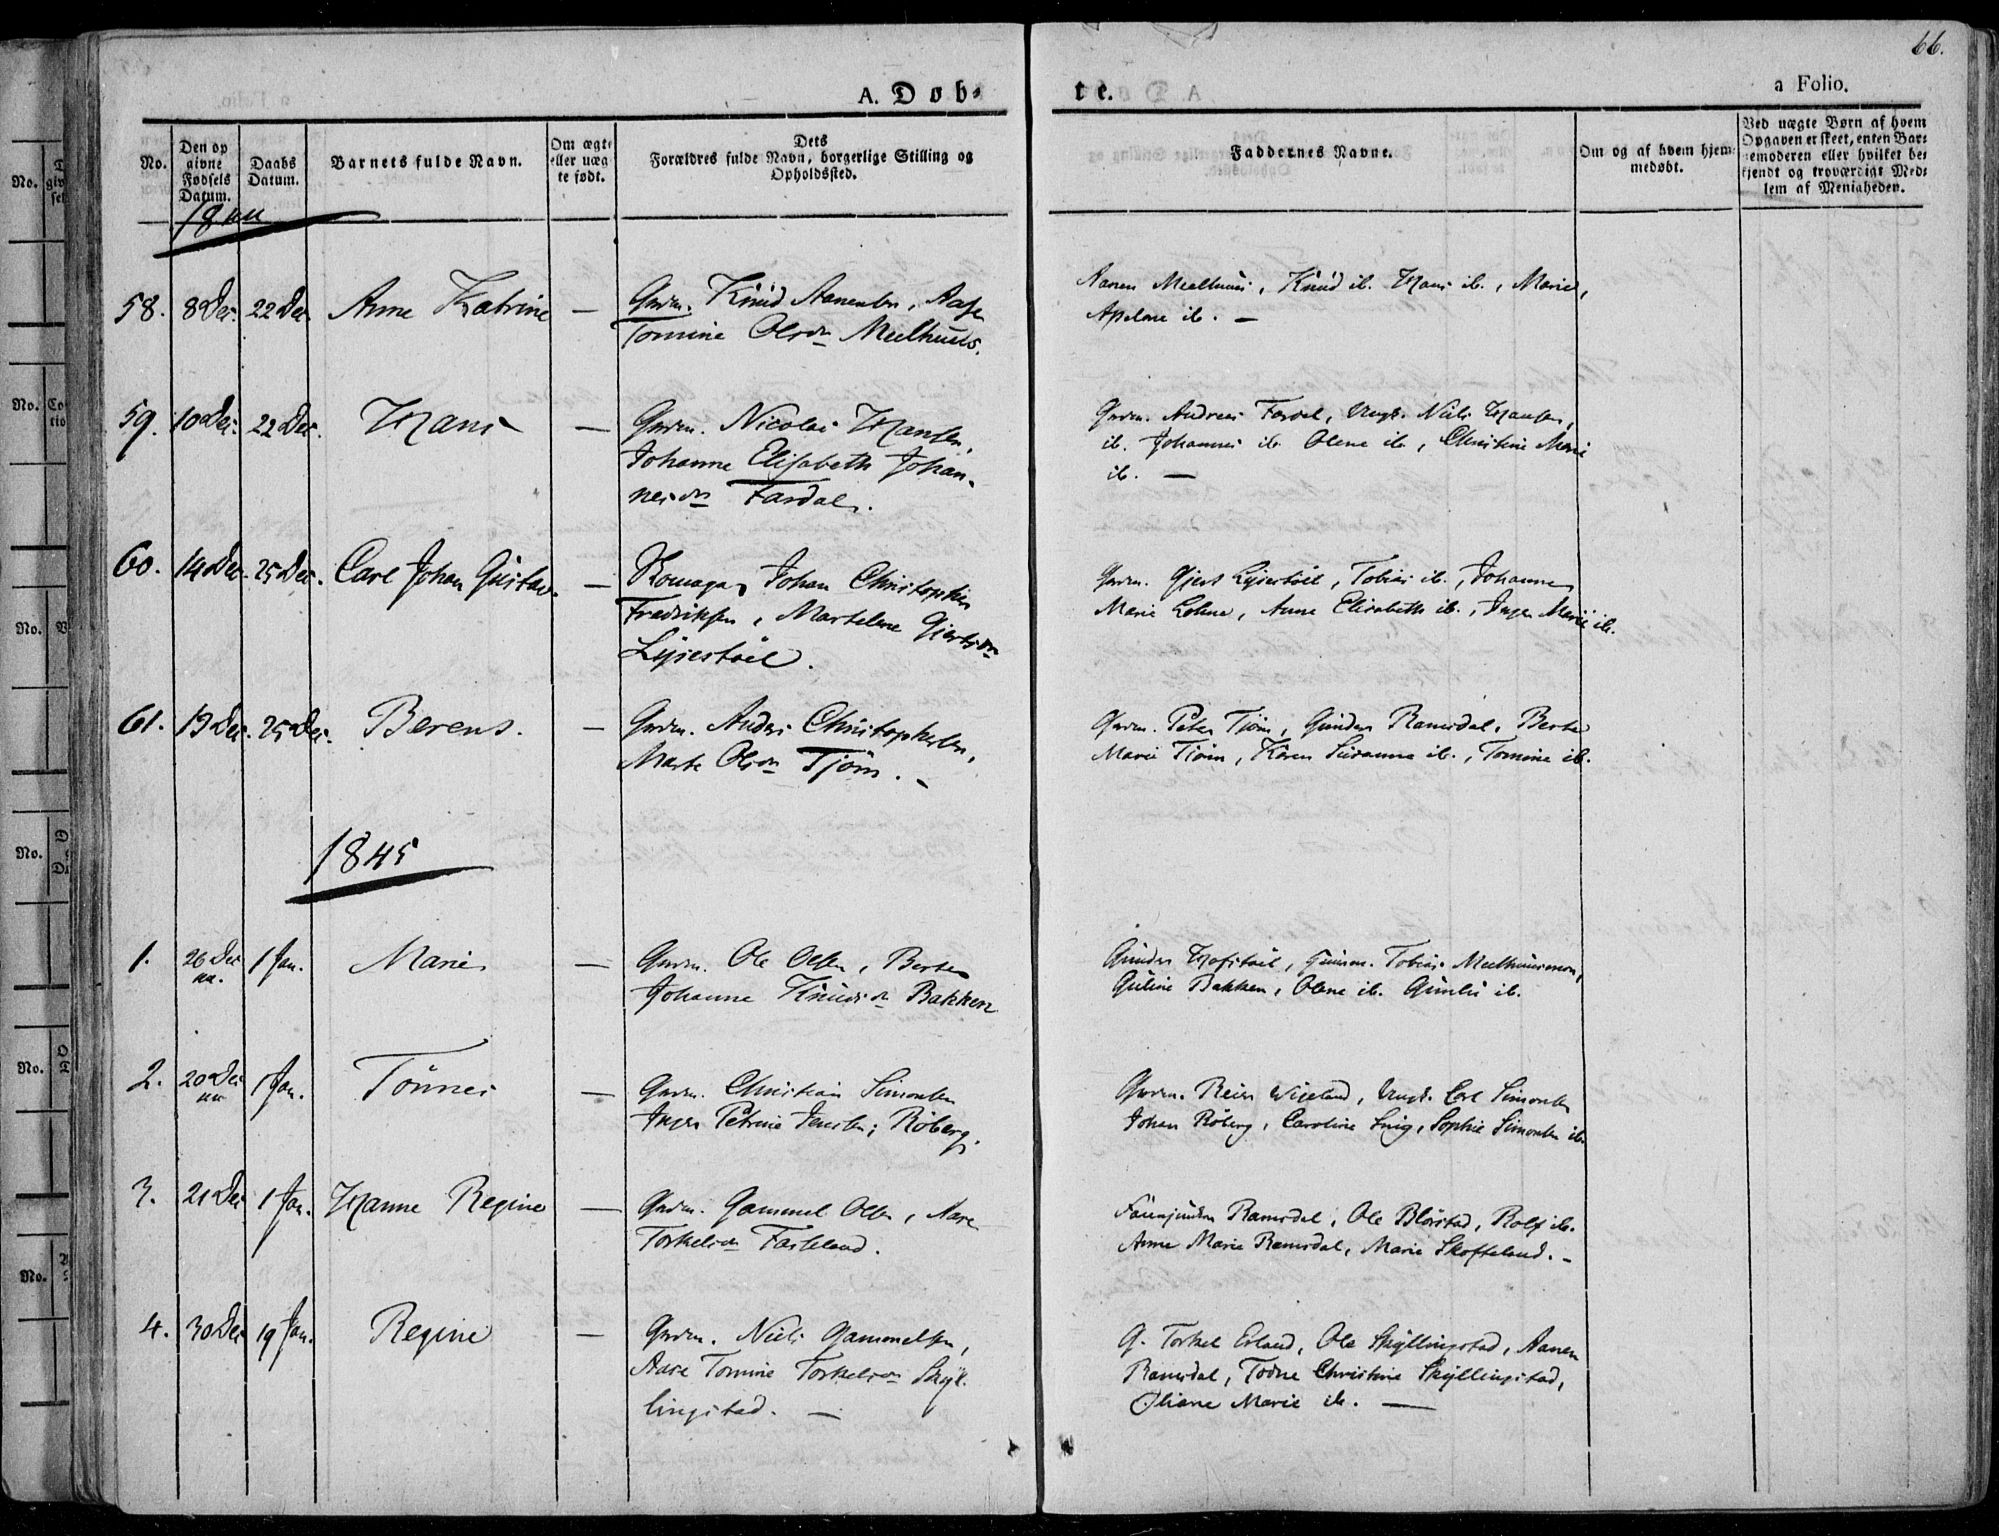 66.
A. Døb-
te.
a Folio.
No.
Den op
givne
Fødsels
Datum.
Daabs
Datum.
Barnets fulde Navn.
Om ægte
eller uæg
te født.
Dets
Forældres fulde Navn, borgerlige Stilling og
Opholdssted.
Faddernes Navne.
Om og af hvem hjem-
medøbt.
Ved uægte Børn af hvem
Opgaven er skeet, enten Bar-
nemoderen eller hvilket be-
kjendt og troværdigt Med-
lem af Menigheden.
1844
58. 8 Dec. 22 Dec. Anne Katrine —
Gmdn. Knud Aanensen, Aase
Tomine Olsdr Meelhuus.
Aanen Meelhuus, Knud ib. Hans ib., Marie,
Apelone ib. —
59. 10 Dec. 22 Dec. Hans —
Gmdn. Nicolai Hansen,
Johanne Elisabeth Johan-
nesdr Fardal.
Gmdn. Andreas Fardal, Ungk. Niels Hansen,
ib. Johannes ib. Olene ib., Christine Marie
ib. —
60. 14 Dec. 25 Dec. Carl Johan Gustav. —
Johan Christopher
Fredriksen, Martelene Gjertsdr
Lyiestøel.
Gmdn. Gjert Lyiestøel, Tobias ib., Johanne
Marie Lohne, Anne Elisabeth ib., Inger Marie ib.
61. 19 Dec. 25 Dec. Berent. —
Gmdn. Anders Christophersen,
Marte Olsdr Tjøm. —
Gmdn. Peter Tjøm, Gunder Ramsdal, Berte
Marie Tjøm, Karen Susanne ib., Tomine ib.
1845
1. 26 Dec 44. 1 Jan. Marie —
Gmdn. Ole Olsen, Berte
Johanne Knudsdr Bakken
Gunder Hofstøel, Tobias Meelhuusmoen,
Guline Bakken, Olene ib. Gunild ib.
2. 20 Dec 44 1 Jan. Tønnes —
Gmdn. Christian Simonsen
Inger Petrine Jensdr, Røberg.
Gmdn. Reier Wigeland, Ungk. Carl Simonsen
Johan Røberg, Caroline Snig, Sophie Simonsen ib.
3. 21 Dec 1 Jan. Hanne Regine —
Gmdn. Gammel Olsen, Aase
Torkelsdr Faseland.
Ramsdal, Ole Blørstad, Rolf ib.
Anne Marie Ramsdal, Marie Skofteland. —
4. 30 Dec 19 Jan. Regine —
Gmdn. Niels Gammelsen,
Aase Tomine Torkelsdr Skyl-
lingstad. —
G. Torkel Erland, Ole Skyllingstad, Aanen
Ramsdal, Todne Christine Skyllingstad,
Oliane Marie ib. —